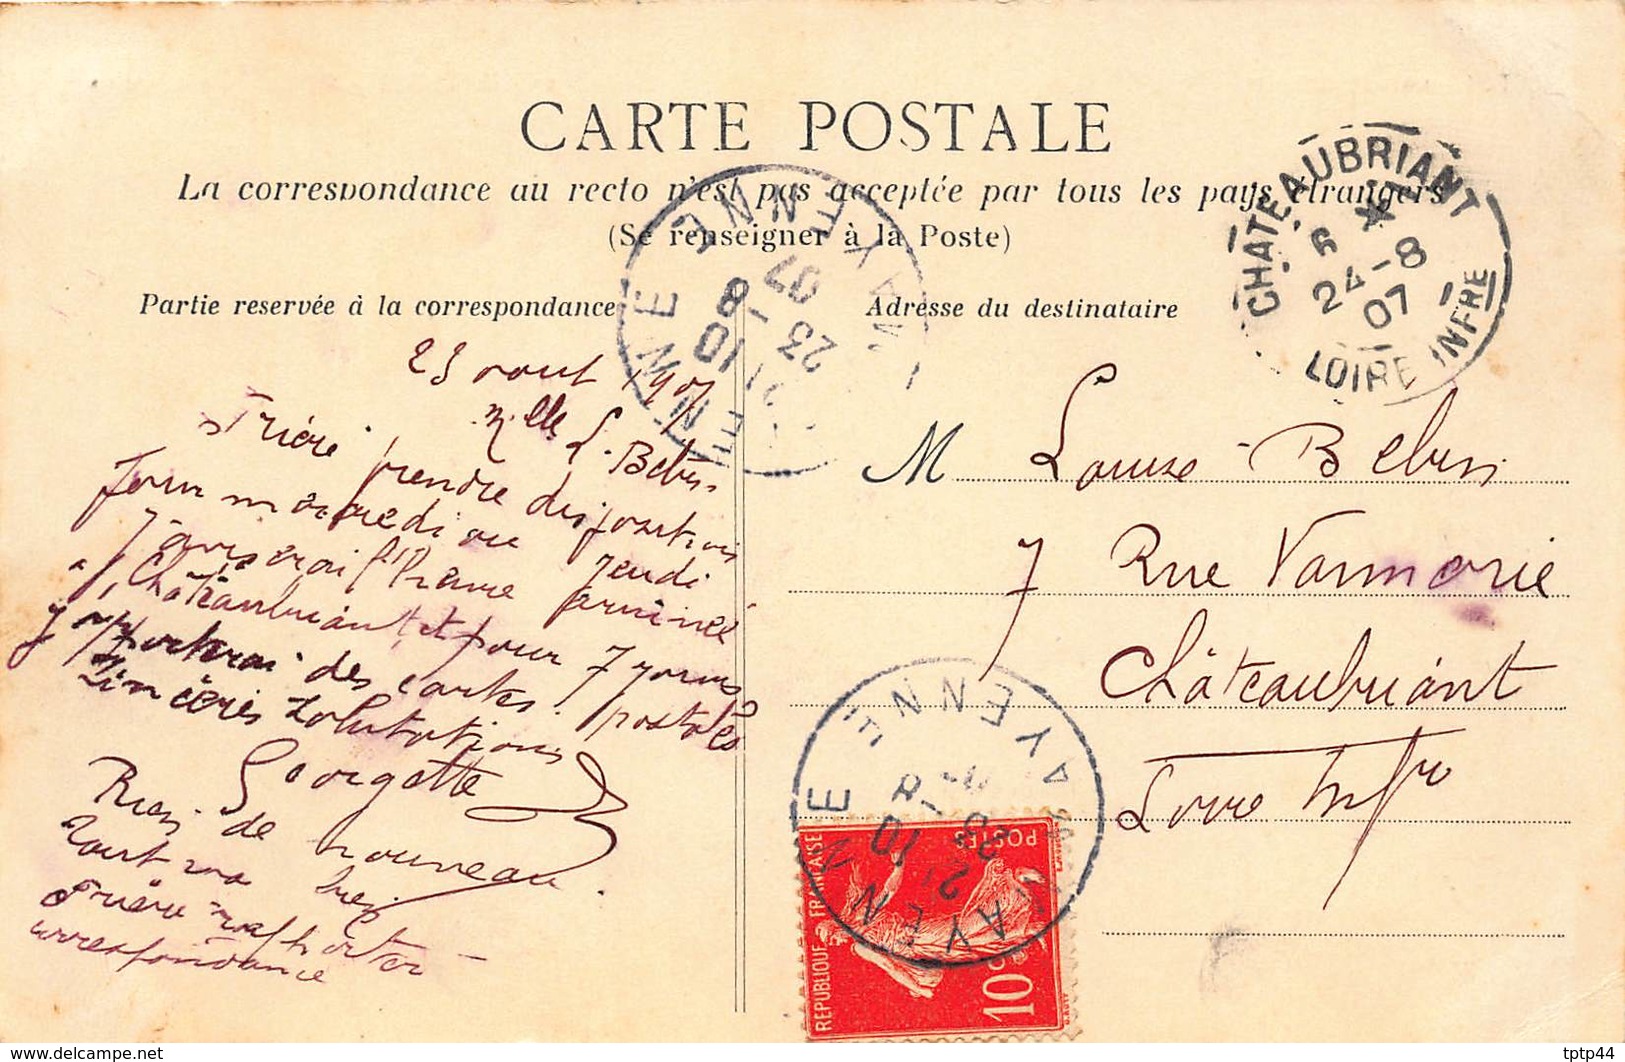 CARTE POSTALE
La correspondance au recto n'est pas acceptée par tous les pays étrangers
(Se renseigner à la Poste)
Partie reservée à la correspondance
Adresse du destinataire
CHATEAUBRIANT
6
24-8
07
LOIRE INFRE
MAYENNE
MAYENNE
21 10
23 - 8
07
23 aout 1907
Mlle L. Bebin
Prière prendre dispositions
pour mercredi ou jeudi
J'aviserai
à Châteaubriant et pour 7
J'apporterai des cartes postales
Sincères salutations
Georgette
Rien de nouveau.
Tout va bien
Prière rapporter
correspondance
M Louise Bebin
7 Rue
Châteaubriant
Loire Infre
MAYENNE
MAYENNE
21 10
REPUBLIQUE FRANÇAISE
POSTES
10c
tptp44